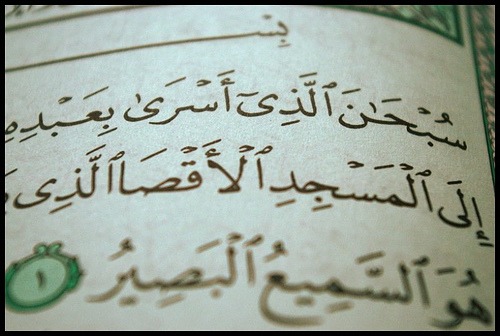 بِسْـ
سُبْحَـٰنَ ٱلَّذِىٓ أَسْرَىٰ بِعَبْدِهِ
إِلَى ٱلْمَسْجِدِ ٱلْأَقْصَا ٱلَّذِى
هُوَ ٱلسَّمِيعُ ٱلْبَصِيرُ ١